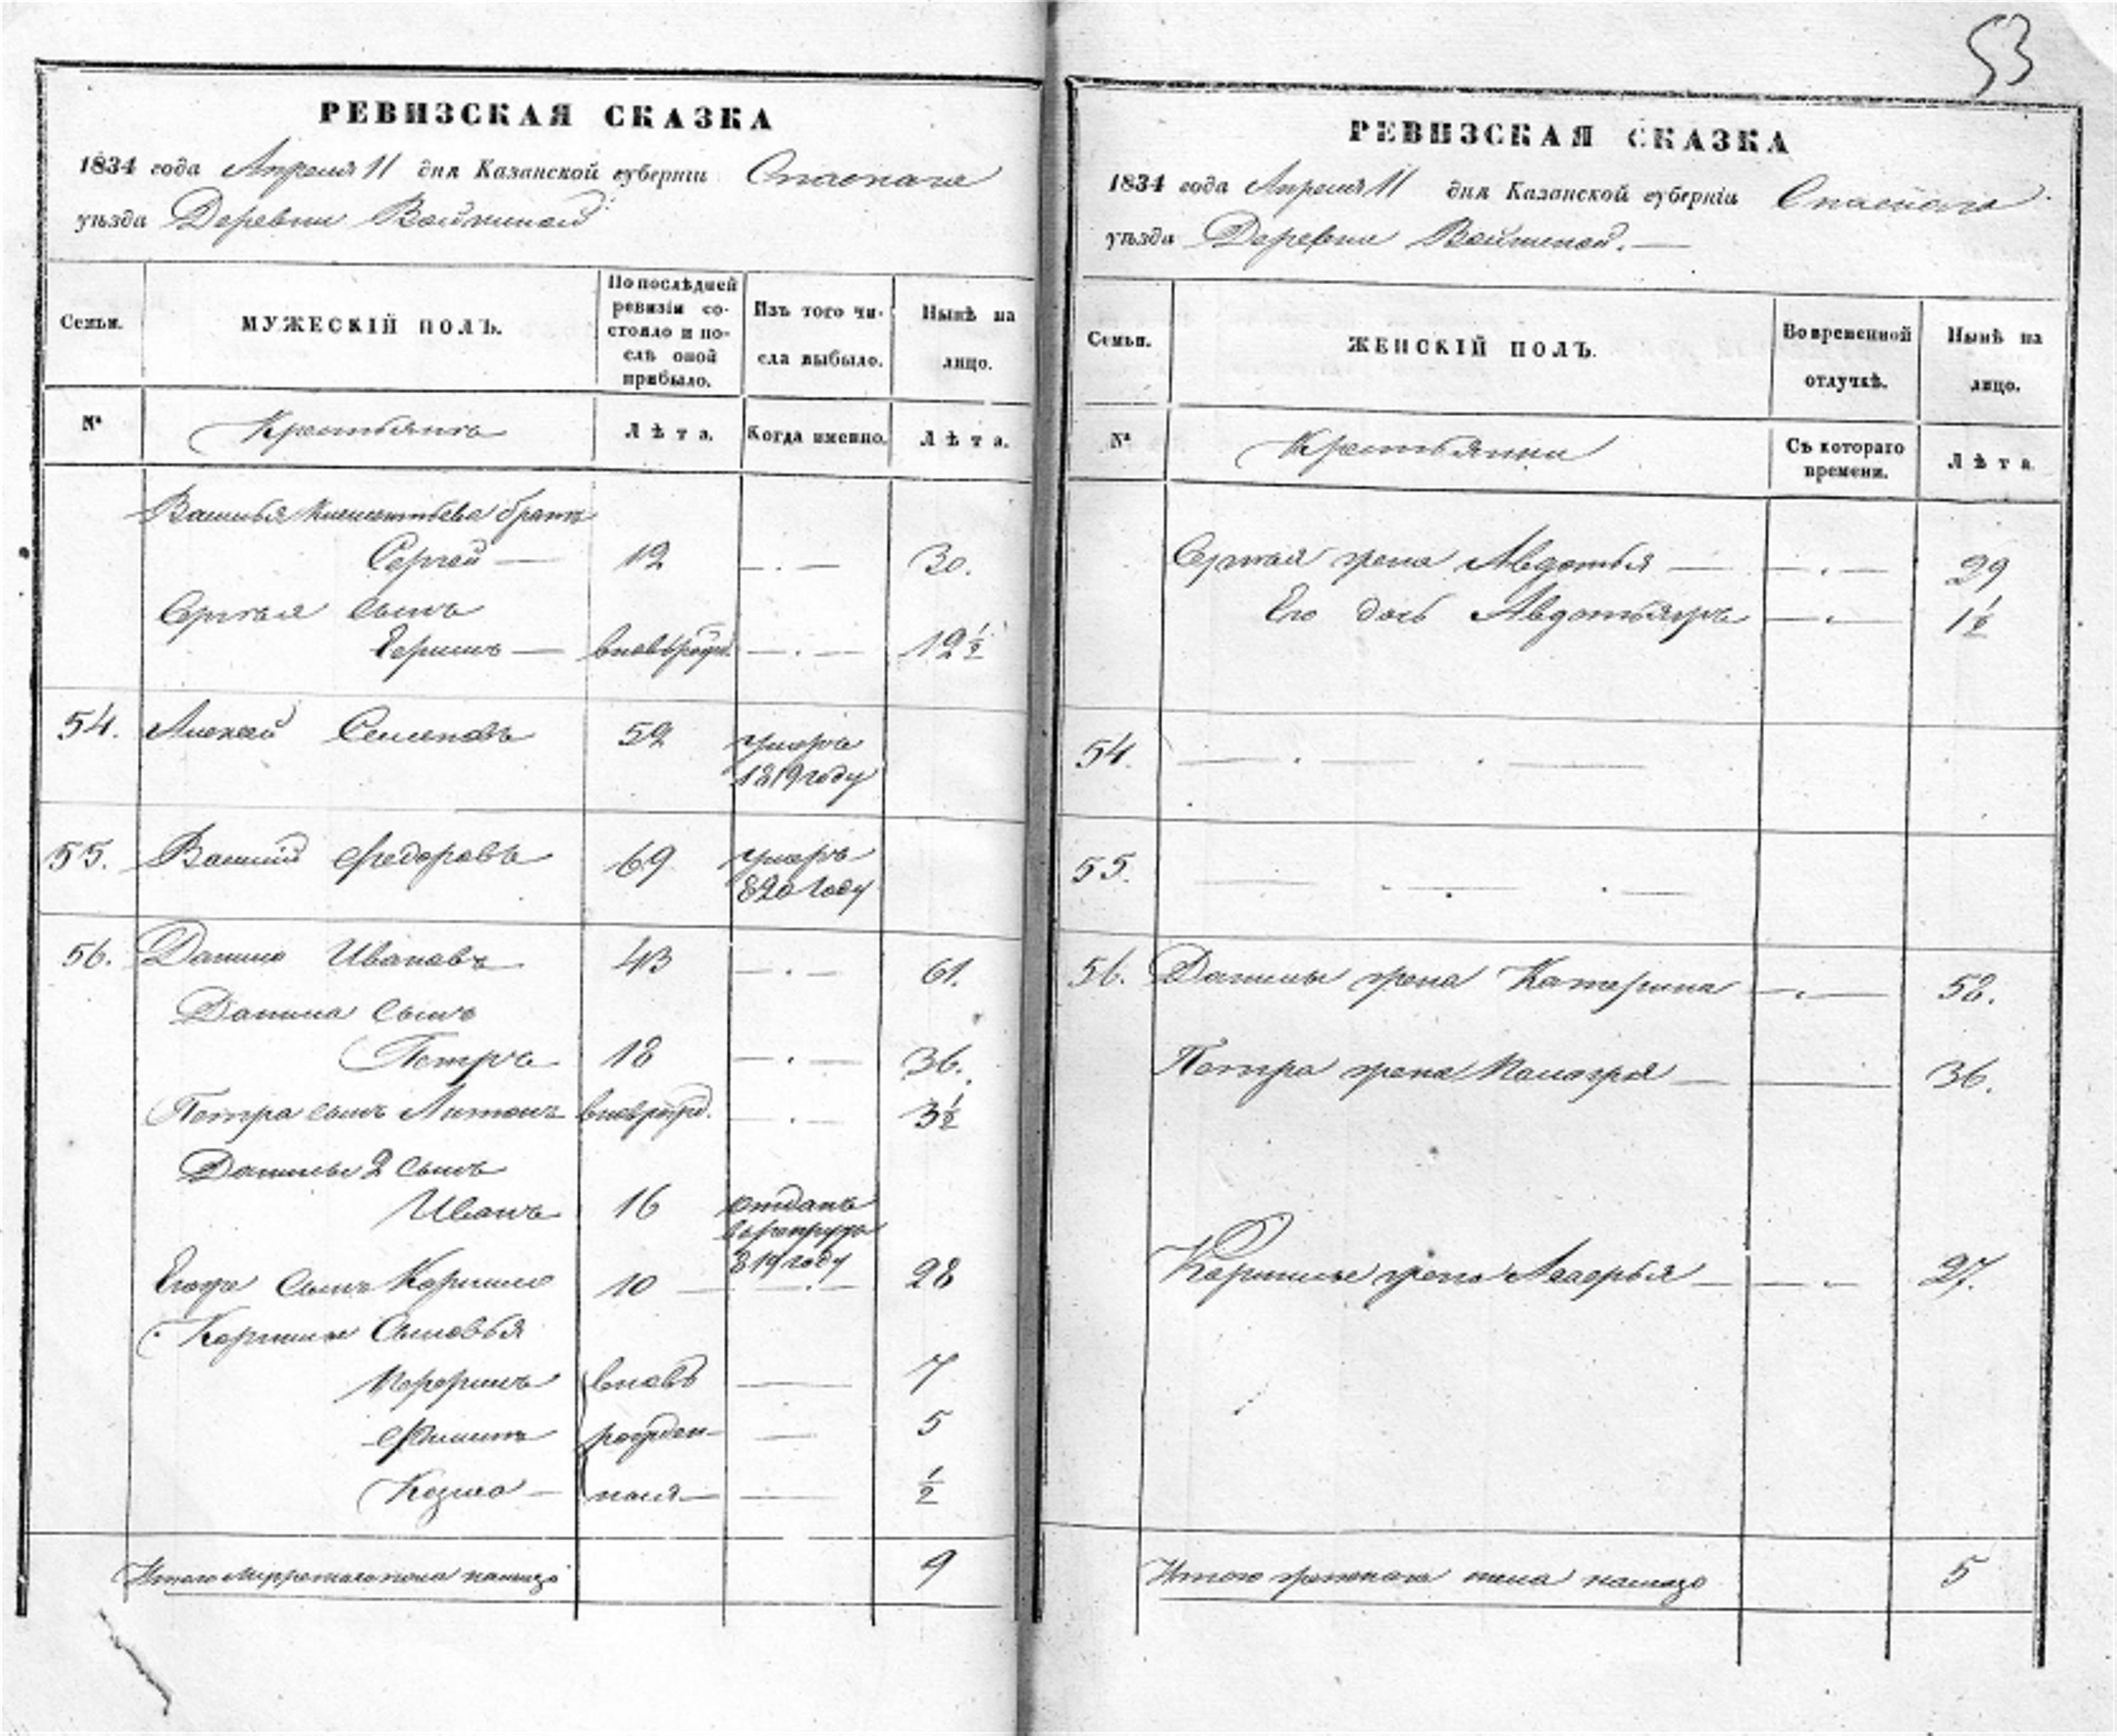 53
РЕВИЗСКАЯ СКАЗКА
1834 года Апреля 11 дня Казанской губерніи Спаскаго
уѣзда Деревни
Семьи.
МУЖЕСКІЙ ПОЛЪ.
По послѣдней
ревизіи со-
стояло и по-
слѣ оной
прибыло.
Изъ того чи-
сла выбыло.
Нынѣ на
лицо.
№
Крестьянъ
Лѣта.
Когда именно.
Лѣта.
Василья братъ
Сергей — 12 — . — 30.
Сергѣя сынъ
— — . — 12 ½
54. Алексей Семеновъ 52 умеръ
1819 году
55. Василий Федоровъ 69 умеръ
820 году
56. Данило Ивановъ 43 — . — 61.
Данила сынъ
Петръ 18 — . — 36.
Петра сынъ Антонъ — . — 3½
Данилы 2 сынъ
Иванъ 16 отданъ
в рекруты
819 году
сынъ Корнило 10 — . — 28
Корнилы сыновья
вновь — 7
Филипъ рожден — 5
Козма — ныя — ½
Итого мужескаго пола налицо 9
РЕВИЗСКАЯ СКАЗКА
1834 года Апреля 11 дня Казанской губерніи Спаскаго
уѣзда Деревни
Семьи.
ЖЕНСКІЙ ПОЛЪ.
Во временной
отлучкѣ.
Нынѣ на
лицо.
№
Крестьянки
Съ котораго
времени.
Лѣта
Сергея жена Авдотья — — . — 29
Его дочь — . — 1½
54. — . — . —
55. — . — . —
56. Данилы жена Катерина — . — 52.
Петра жена — — 36.
Корнилы жена — — . 27.
Итого женскаго пола налицо 5